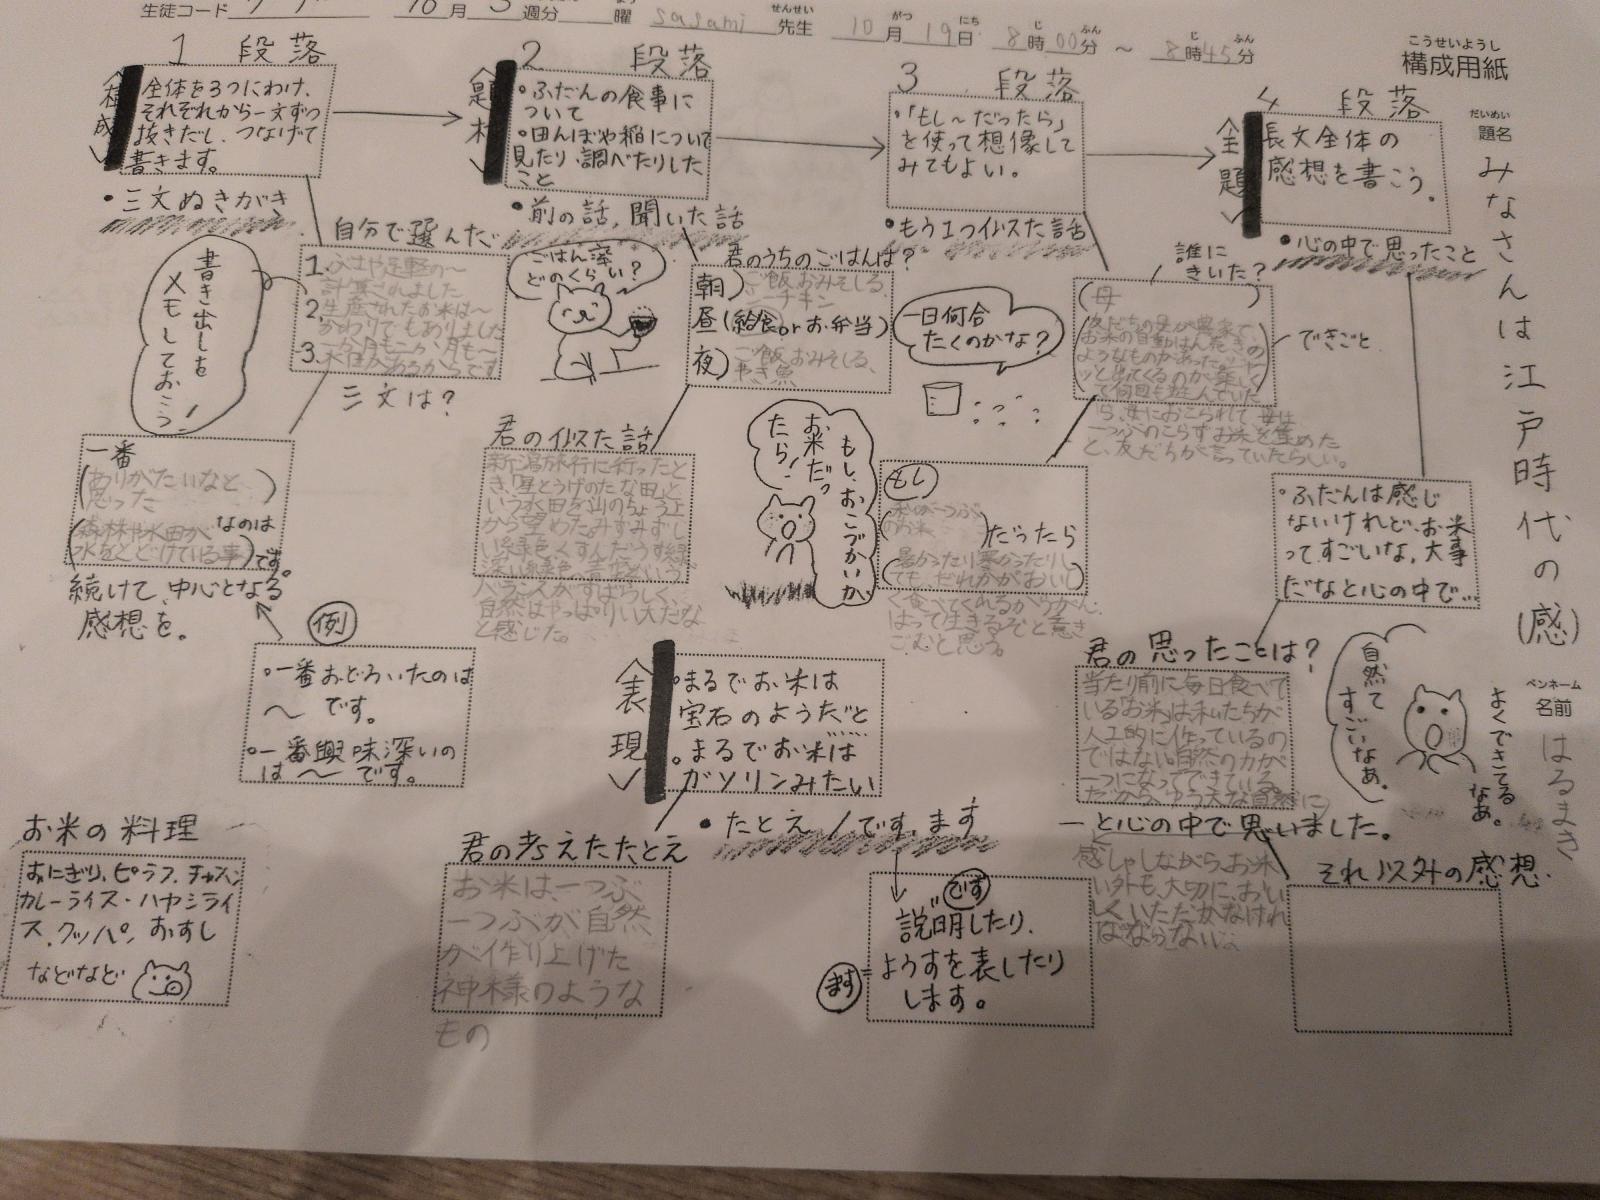 生徒コード
10月3週分 曜 sasami 先生 10月19日 8時00分 ～ 8時45分
せんせい がつ にち じ ふん じ ふん
こうせいようし
構成用紙
だいめい
題名
みなさんは江戸時代の(感)
ペンネーム
名前
はるまき
1 段落
〈構成〉
全体を3つにわけ、
それぞれから一文ずつ
抜きだし、つなげて
書きます。
・三文ぬきがき
書き出しを
メモしておこう!
自分で選んだ
1.ふせや足軽の～
計算されました
2.生産されたお米は～
かわりでもありました
3.一か月も二か月も～
水田があるからです
三文は?
一番
(ありがたいなと
思った)
なのは
(森林や水田が
水をとどけている事)です。
続けて、中心となる
感想を。
例
・一番おどろいたのは
～です。
・一番興味深いの
は～です。
お米の料理
おにぎり、ピラフ、チャーハン
カレーライス・ハヤシライ
ス、クッパ、おすし
などなど
2 段落
〈題材〉
・ふだんの食事に
ついて
・田んぼや稲について
見たり、調べたりした
こと
・前の話,聞いた話
ごはん粒
どのくらい?
君のうちのごはんは?
朝)ご飯おみそしる、
チキン
昼(給食orお弁当)
夜)ご飯、おみそしる、
やき魚
君の似た話
新潟旅行に行ったと
き、「星とうげのたな田」と
いう水田を山のちょう上
から望めた。みずみずし
い緑色、くすんだうす緑
深い緑色、
バランスがすばらしく、
自然はやっぱりい大だな
と感じた。
〈表現〉
・まるでお米は
宝石のようだと
・まるでお米は
ガソリンみたい
・たとえ/です,ます
君の考えたたとえ
お米は、一つぶ
一つぶが自然
が作り上げた
神様のような
もの
です
説明したり、
ます=ようすを表したり
します。
3 段落
・「もし～だったら」
を使って想像して
みてもよい。
・もう1つ似た話
一日何合
たくのかな?
もし、おこづかいが
お米だっ
たら!
誰に
きいた?
(母)
(友だちの兄が農家で、
お米の自動はん売きの
ようなものがあった。
ッと出てくるのが楽しく
て何回も遊んでいた
ら、母におこられて、母は
一つぶのこらずお米を集めた
と、友だちが言っていたらしい。
できごと
もし
(私が一つぶ
のお米)だったら
(暑かったり寒かったりし
ても、だれかがおいし
く食べてくれるからがん
ばって生きるぞと意き
ごむと思う。
4 段落
〈全題〉
長文全体の
感想を書こう。
・心の中で思ったこと
・ふだんは感じ
ないけれど、お米
ってすごいな、大事
だなと心の中で…
君の思ったことは?
当たり前に毎日食べて
いる「お米」は私たちが
人工的に作っているの
ではない。自然の力が
一つになってできている。
だから、ゆう大な自然に
感しゃしながら、お米
い外も、大切に、おい
しくいただかなけれ
ばならない
―と心の中で思いました。
自然て
すごいなぁ。
よくできてる
なぁ。
それ以外の感想